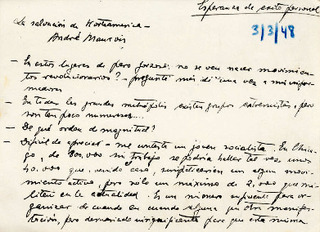 Esperanza de éxito personal
3/3/48
La salvación de Norteamérica —
André Maurois
— En estos lugares de paro forzoso: no se ven nacer movimientos revolucionarios? — pregunté más de una vez a mis
— En todas las grandes metrópolis existen grupos extremistas, pero
son tan poco numerosos...
— De qué orden de magnitud?
— Difícil de apreciar — me contestó un joven socialista. En Chicago, de 800.000 sin trabajo se podría hallar tal vez, unos
40.000 que, siendo caso, simpatizarían con algún movimiento activo, pero sólo un máximo de 2.000 que militen en la actualidad. Es un número suficiente para organizar de cuando en cuando alguna que otra manifestación, pero demasiado insignificante para que esta misma